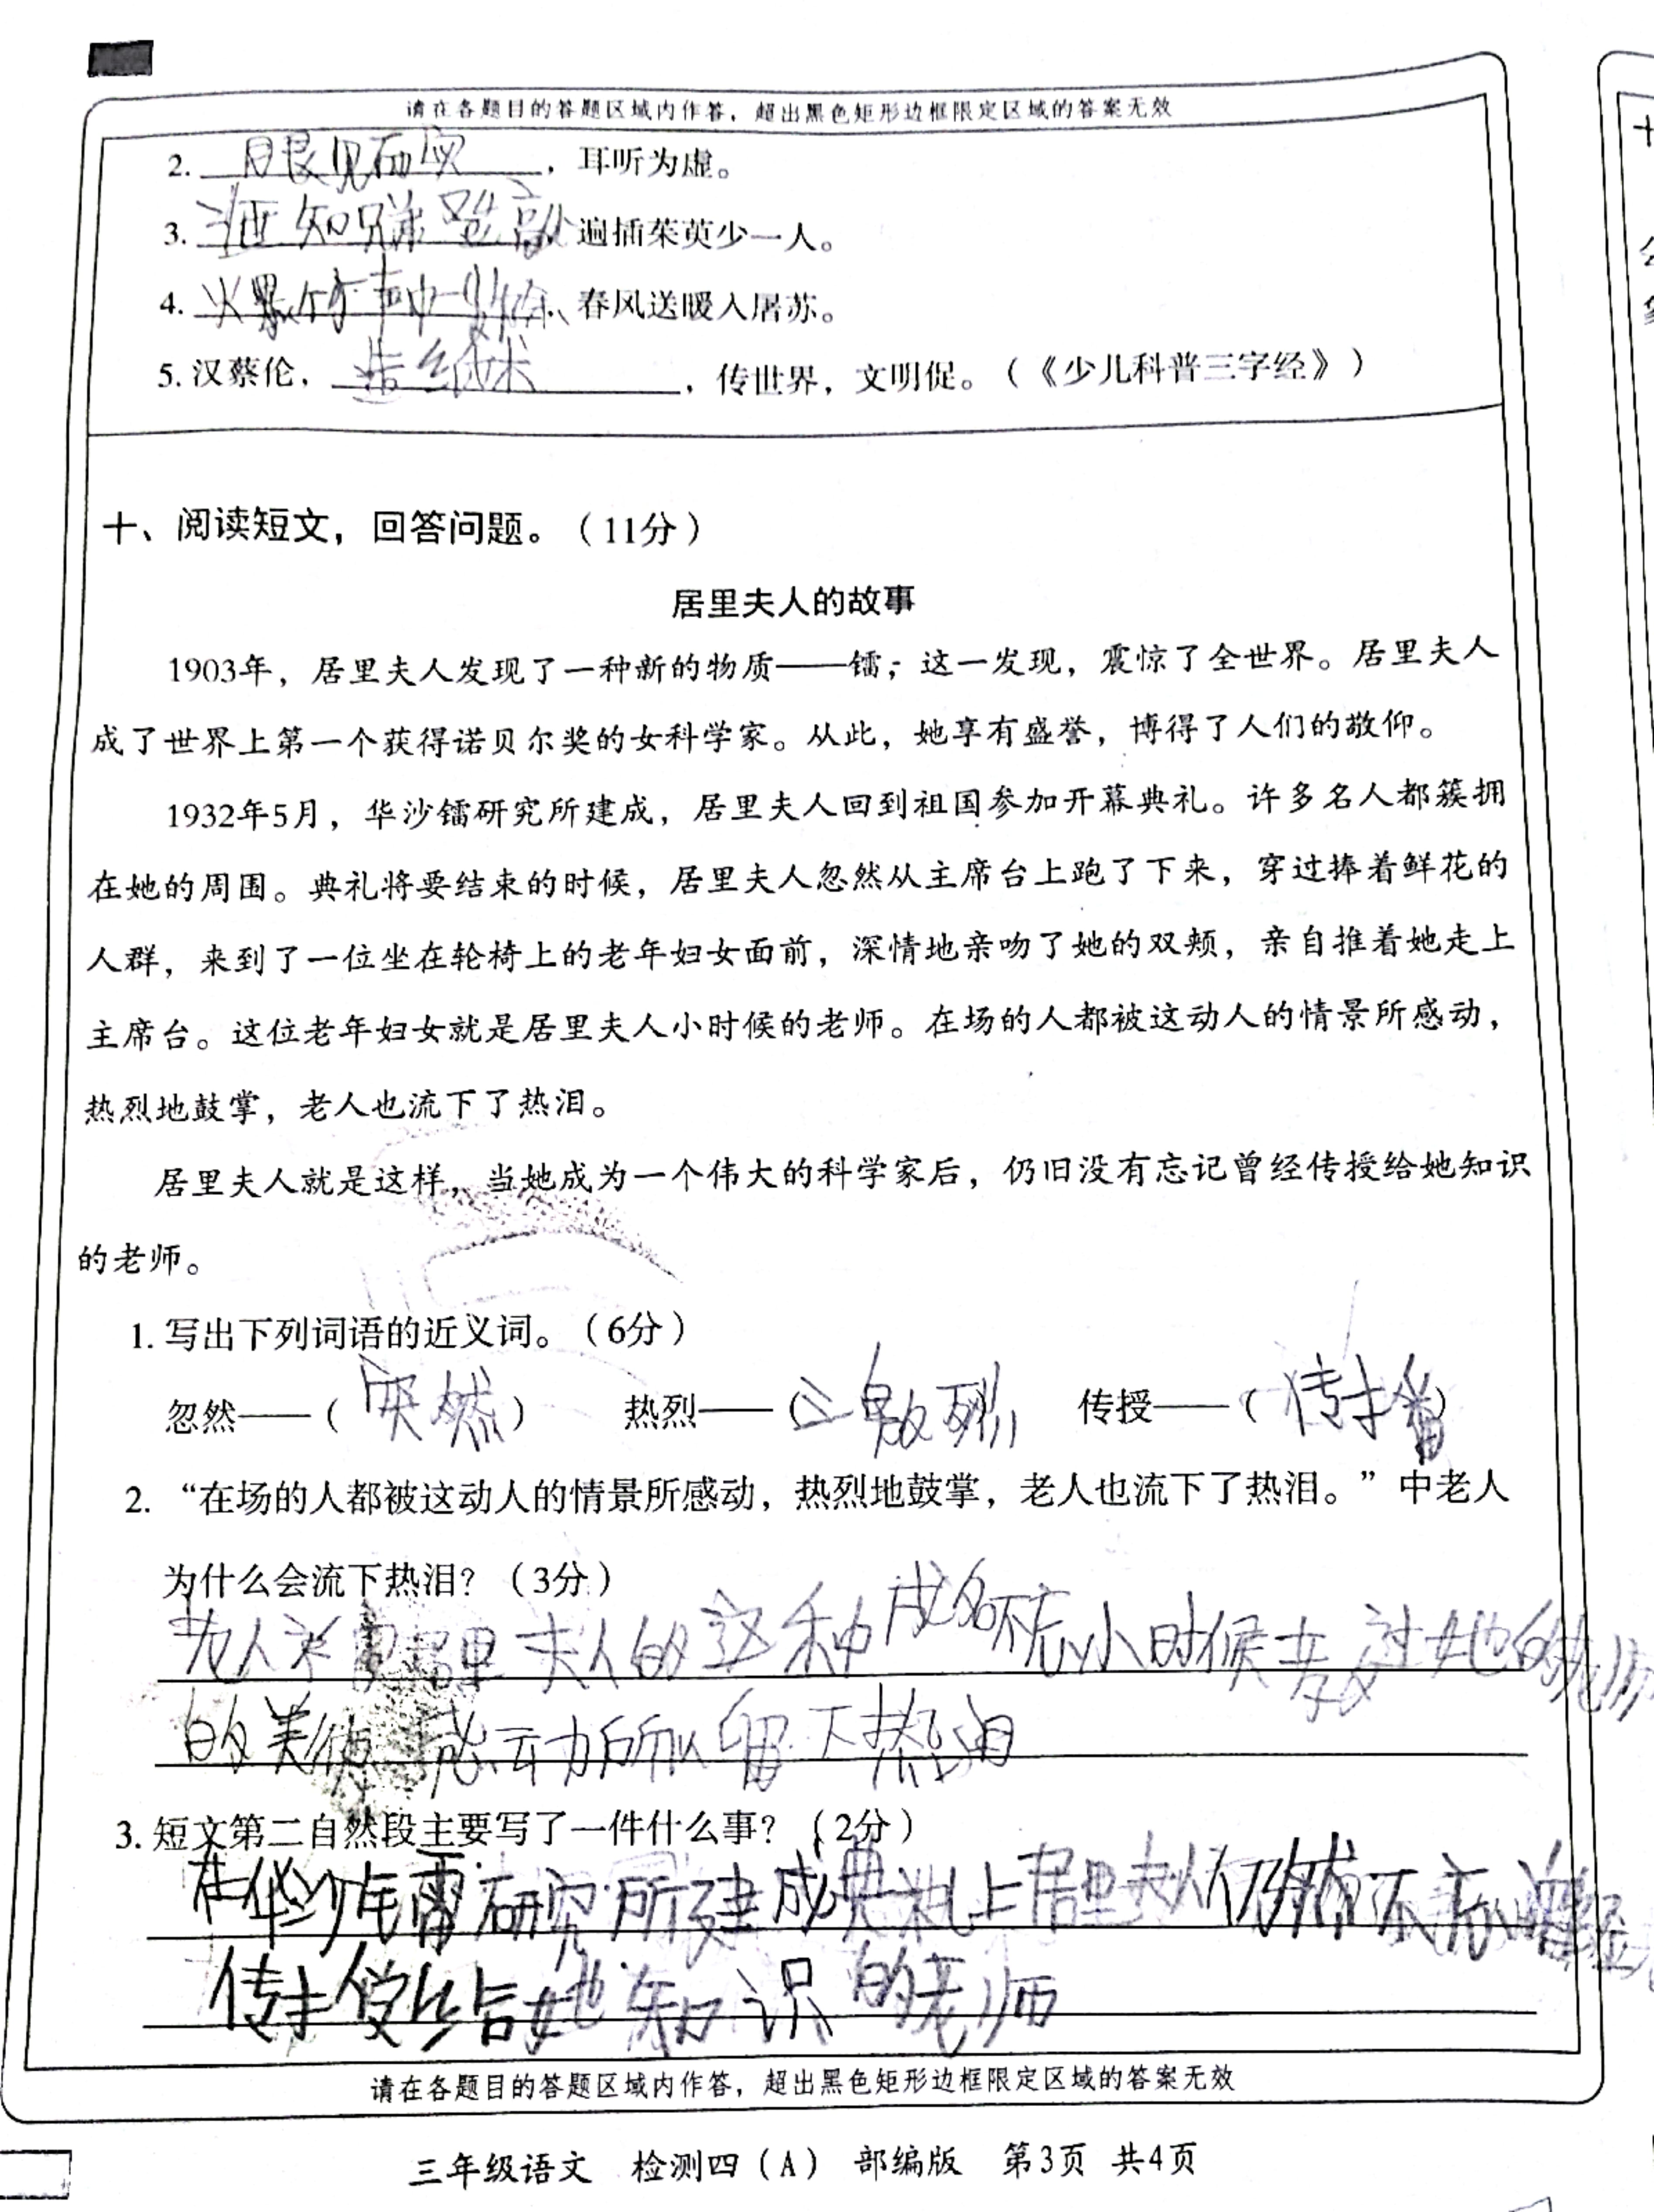 请在各题目的答题区域内作答，超出黑色矩形边框限定区域的答案无效
2. 眼见 ，耳听为虚。
3. 知 高 遍插茱萸少一人。
4. 竹声中一 、春风送暖入居苏。
5. 汉蔡伦， 纸术 ，传世界，文明促。（《少儿科普三字经》）
十、阅读短文，回答问题。（11分）
居里夫人的故事
1903年，居里夫人发现了一种新的物质——镭，这一发现，震惊了全世界。居里夫人
成了世界上第一个获得诺贝尔奖的女科学家。从此，她享有盛誉，博得了人们的敬仰。
1932年5月，华沙镭研究所建成，居里夫人回到祖国参加开幕典礼。许多名人都簇拥
在她的周围。典礼将要结束的时候，居里夫人忽然从主席台上跑了下来，穿过捧着鲜花的
人群，来到了一位坐在轮椅上的老年妇女面前，深情地亲吻了她的双颊，亲自推着她走上
主席台。这位老年妇女就是居里夫人小时候的老师。在场的人都被这动人的情景所感动，
热烈地鼓掌，老人也流下了热泪。
居里夫人就是这样，当她成为一个伟大的科学家后，仍旧没有忘记曾经传授给她知识
的老师。
1. 写出下列词语的近义词。（6分）
忽然——（突然） 热烈——（ 烈 传授——（传播）
2. “在场的人都被这动人的情景所感动，热烈地鼓掌，老人也流下了热泪。”中老人
为什么会流下热泪？（3分）
居里夫人的这种成名不忘小时候教过她的老师
的美德 感动所以留下热泪
3. 短文第二自然段主要写了一件什么事？（2分）
在华沙镭研究所建成典礼上居里夫人仍然不忘曾经
传授给她知识的老师
请在各题目的答题区域内作答，超出黑色矩形边框限定区域的答案无效
三年级语文 检测四（A） 部编版 第3页 共4页